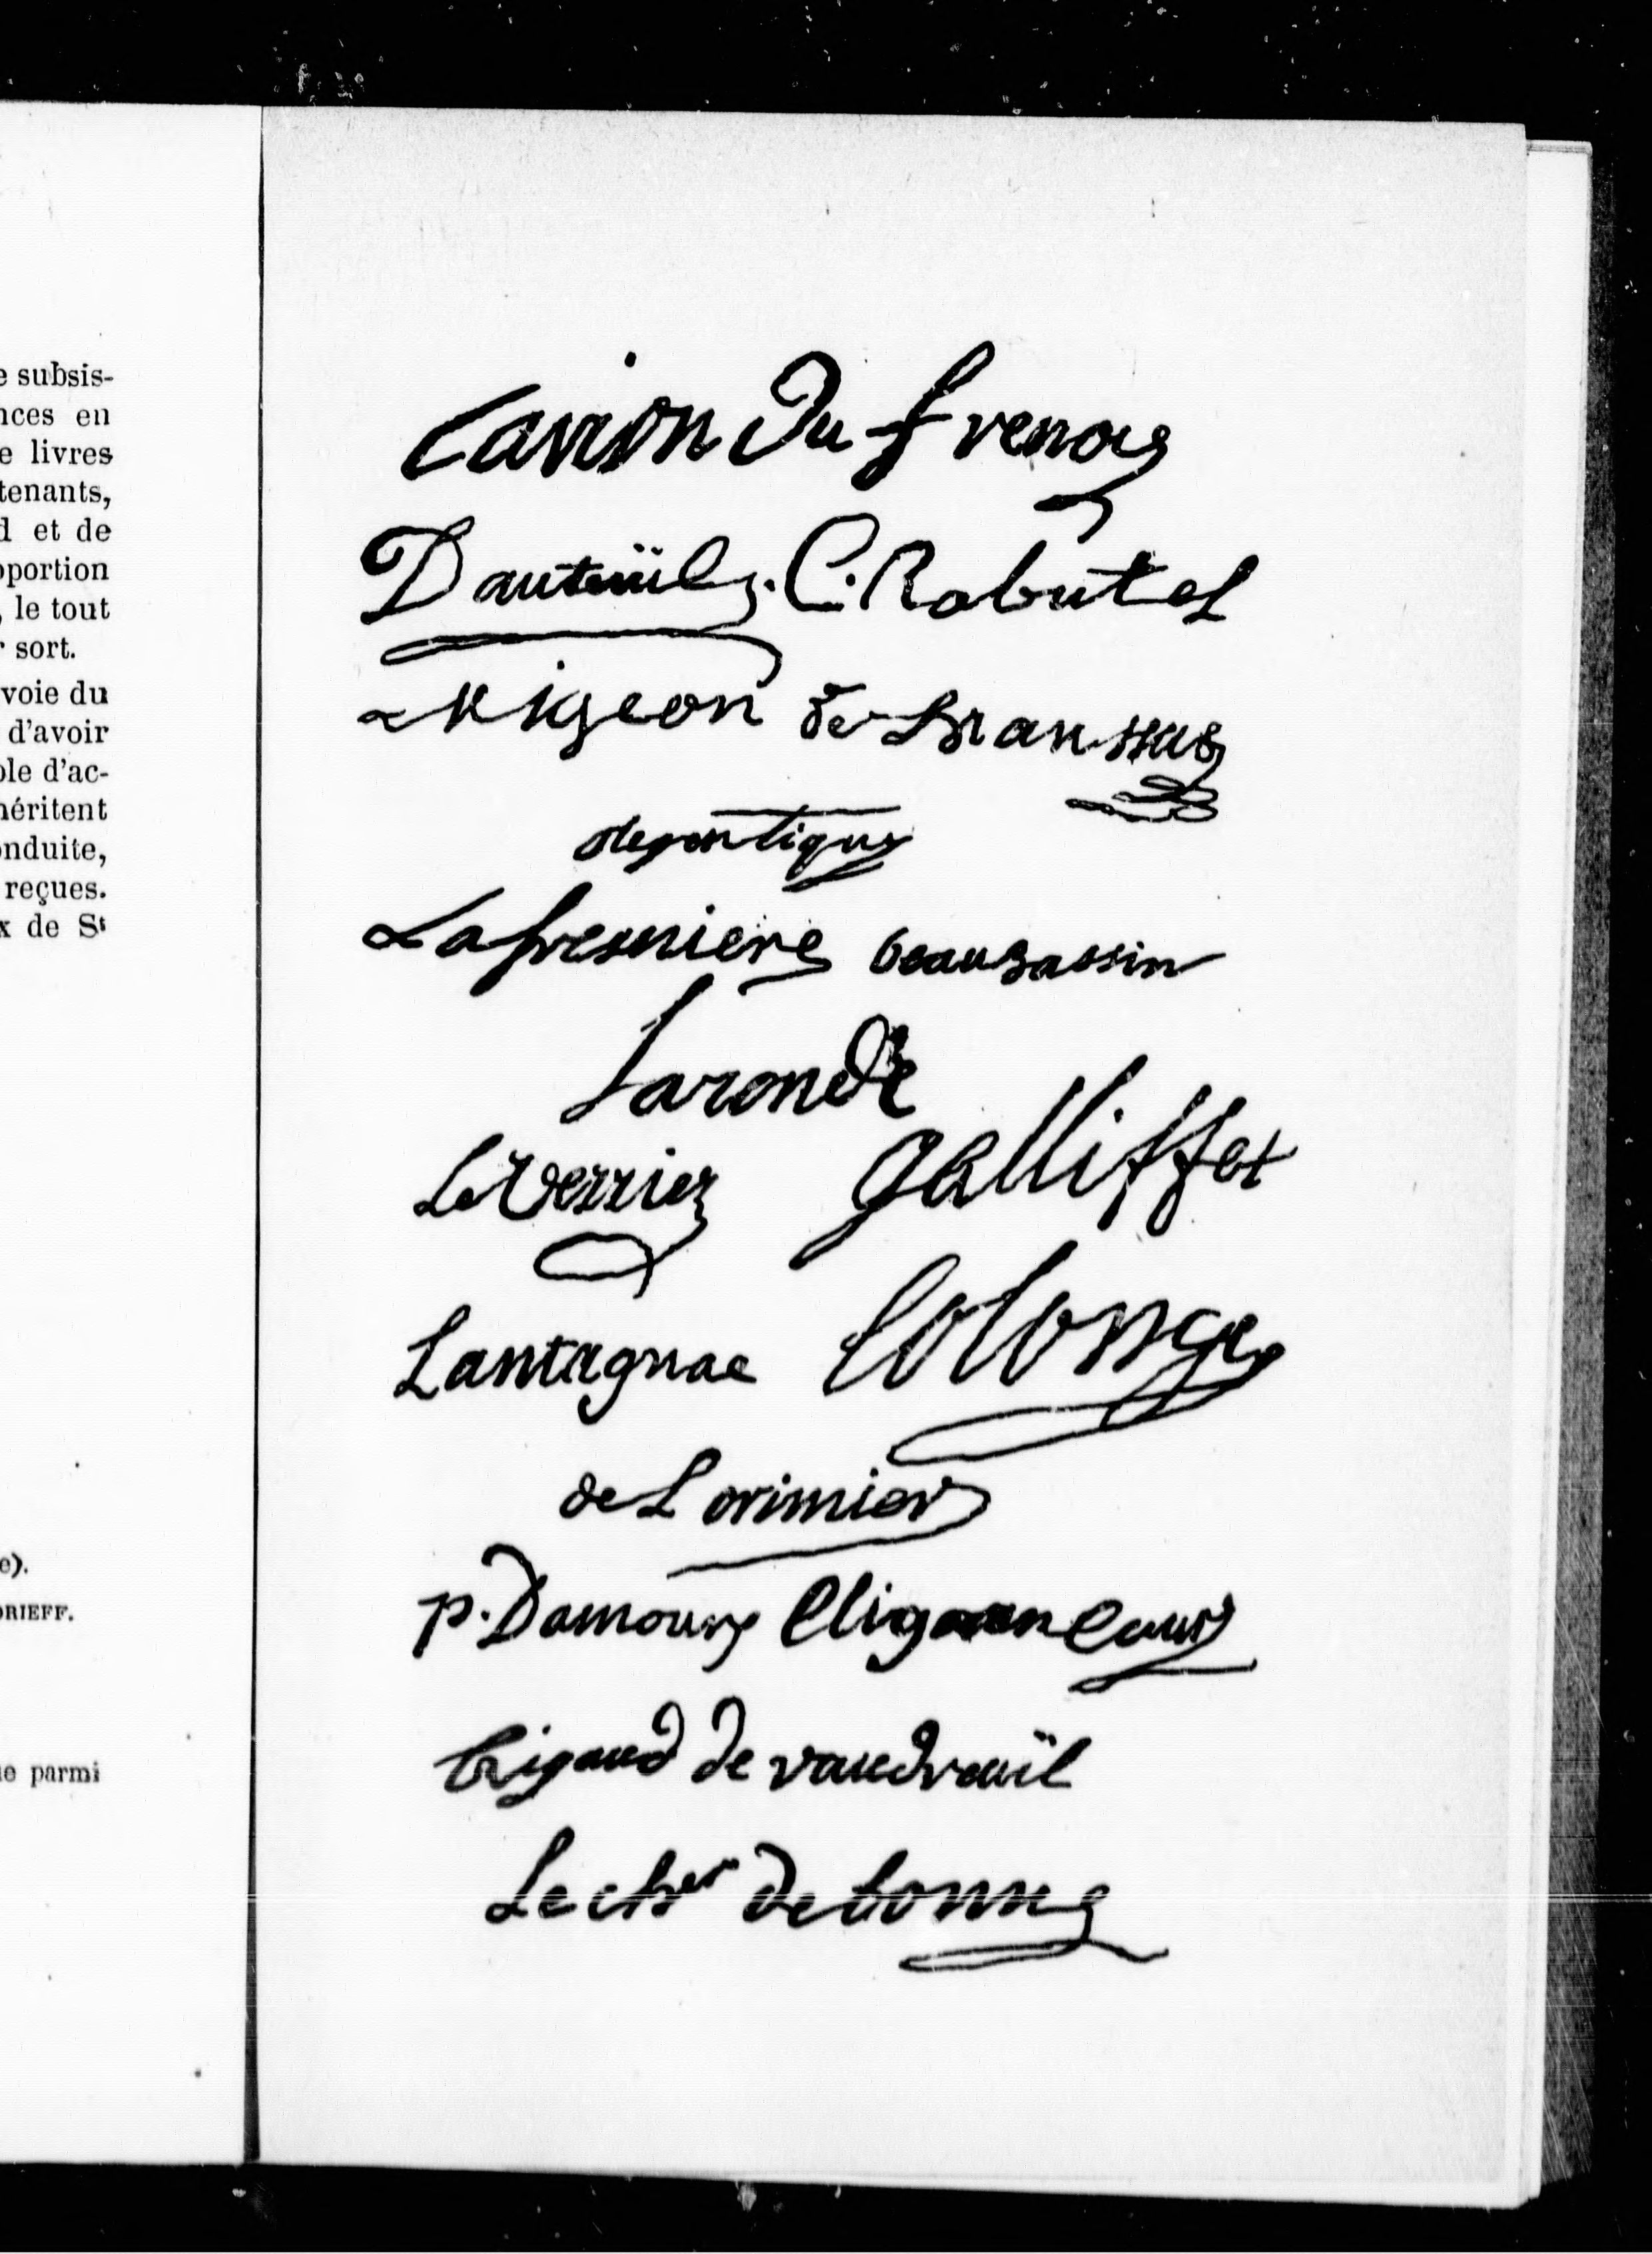 e subsis-
nces en
e livres
tenants,
d et de
portion
, le tout
r sort.
voie du
d'avoir
ole d'ac-
méritent
onduite,
reçues.
x de St
e).
ORIEFF.
ue parmi
Carion Du fresnoy
Dauteüil. C. Robutel
Migeon de Branssas
degontiques
Lafresniere beaubassin
Laronde
Le Verrier Galliffet
Lantagnac Colonge
de Lorimier
p. Damours Clignancour
Rigaud de vaudreuïl
Le cher de bonne